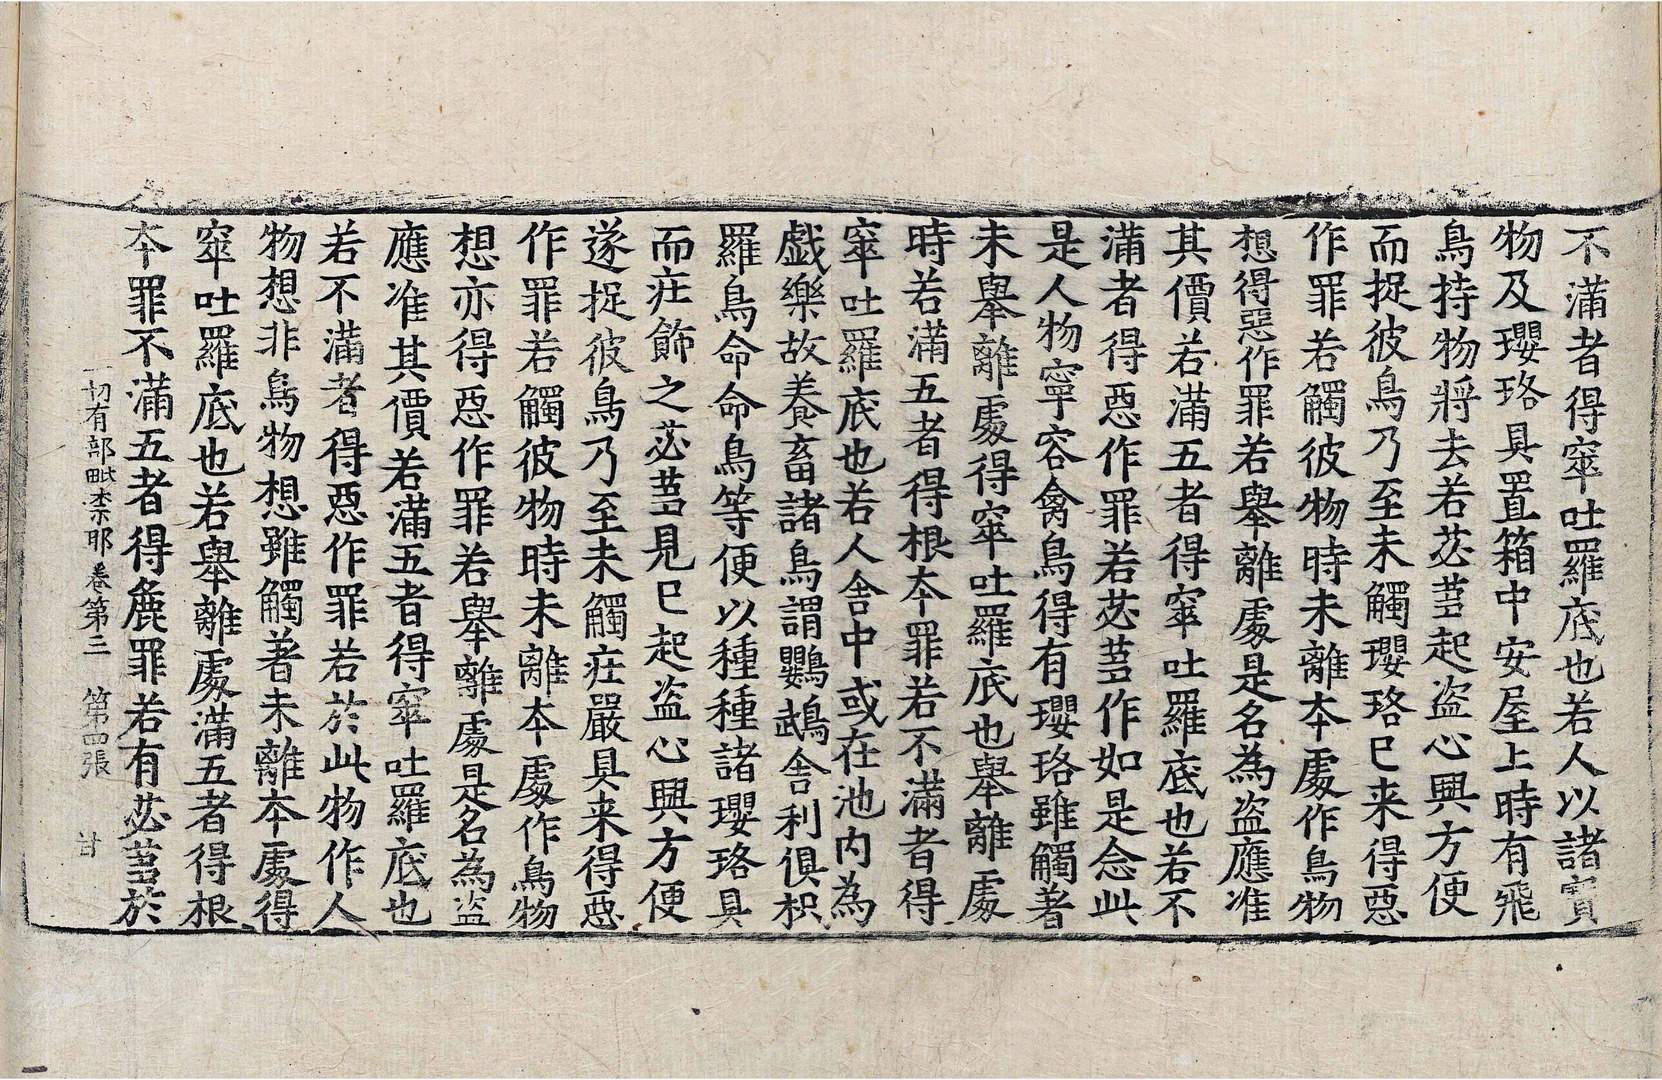 不滿者得窣吐羅底也若人以諸寶
物及瓔珞具置箱中安屋上時有飛
鳥持物將去若苾蒭起盜心興方便
而捉彼鳥乃至未觸瓔珞已来得惡
作罪若觸彼物時未離本處作鳥物
想得惡作罪若舉離處是名為盜應准
其價若滿五者得窣吐羅底也若不
滿者得惡作罪若苾蒭作如是念此
是人物寧容禽鳥得有瓔珞雖觸著
未舉離處得窣吐羅底也舉離處
時若滿五者得根本罪若不滿者得
窣吐羅底也若人舍中或在池內為
戲樂故養畜諸鳥謂鸚鵡舍利俱枳
羅鳥命命鳥等便以種種諸瓔珞具
而庄飾之苾蒭見已起盜心興方便
遂捉彼鳥乃至未觸庄嚴具来得惡
作罪若觸彼物時未離本處作鳥物
想亦得惡作罪若舉離處是名為盜
應准其價若滿五者得窣吐羅底也
若不滿者得惡作罪若於此物作人
物想非鳥物想雖觸著未離本處得
窣吐羅底也若舉離處滿五者得根
本罪不滿五者得麁罪若有苾蒭於
一切有部毗柰耶卷第三 第四張 甘